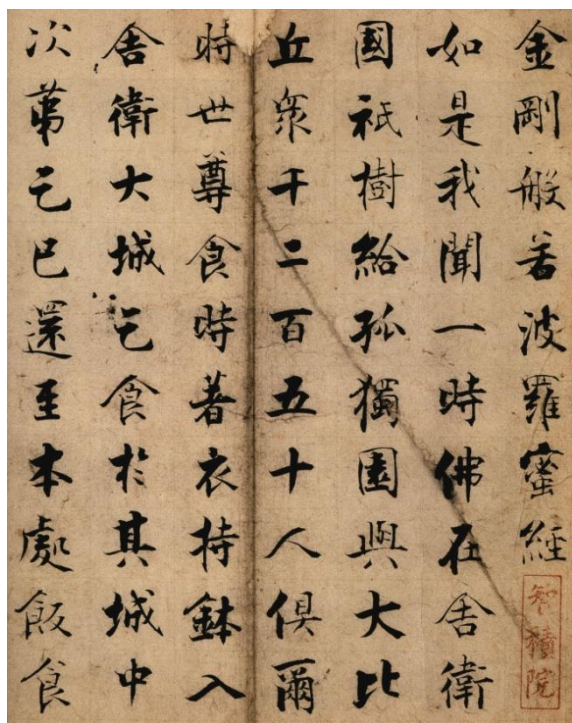 金剛般若波羅蜜經
智積院
如是我聞一時佛在舍衛
國祇樹給孤獨園與大比
丘衆千二百五十人俱爾
時世尊食時著衣持鉢入
舍衛大城乞食於其城中
次第乞已還至本處飯食